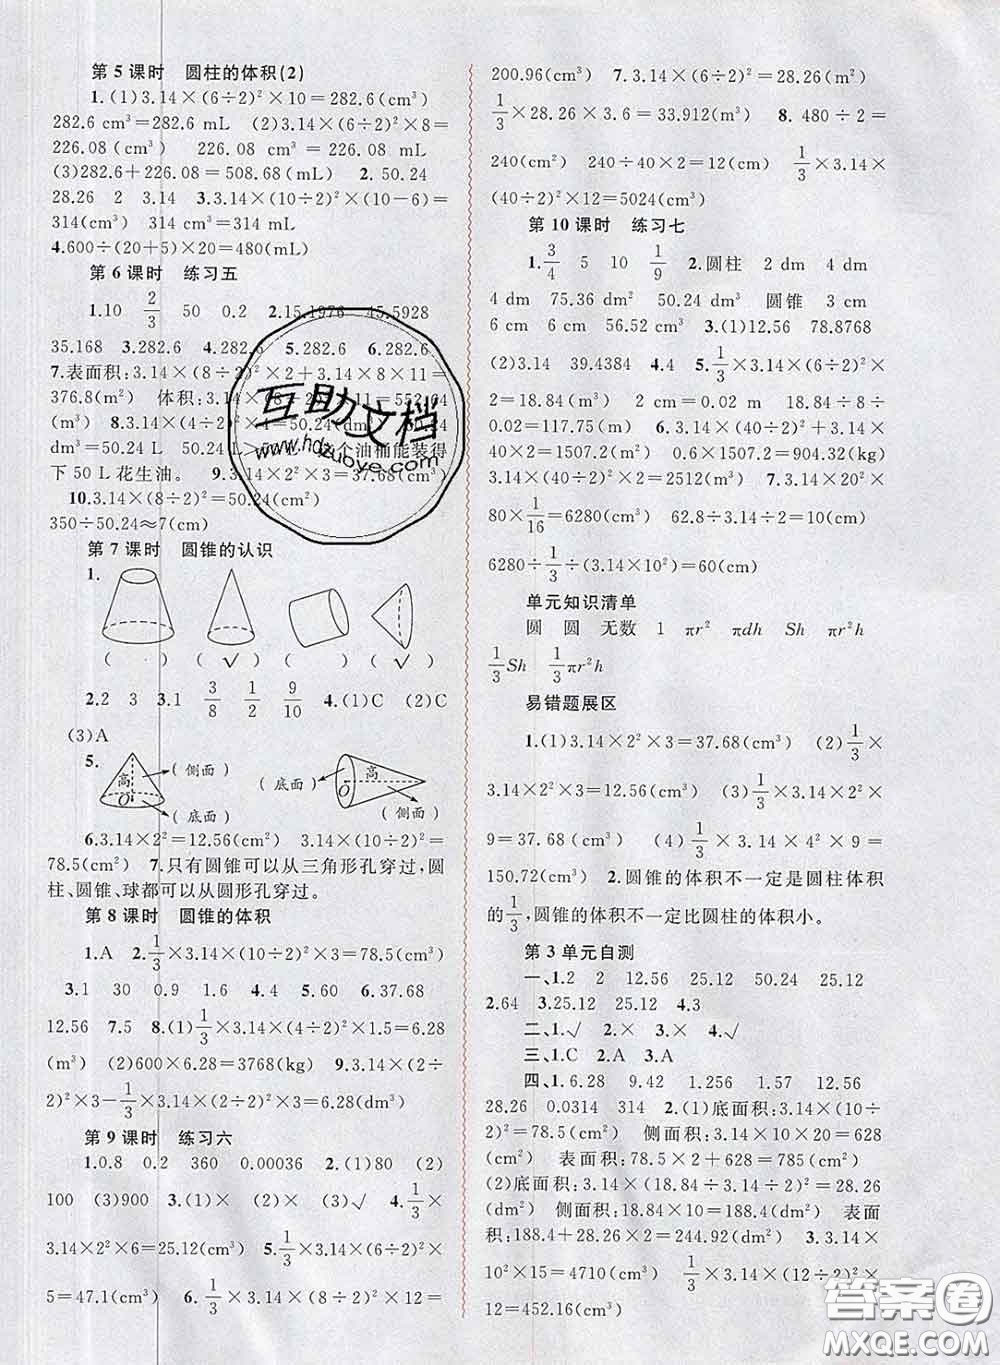 第 5 课时　圆柱的体积(2)
1.(1)3.14×(6÷2)²×10=282.6(cm³)
282.6 cm³=282.6 mL　(2)3.14×(6÷2)²×8=
226.08 (cm³)　226.08 cm³=226.08 mL
(3)282.6+226.08=508.68(mL)　2.50.24
28.26　2　3.14　3.3.14×(10÷2)²×(10-6)=
314(cm³)　314 cm³=314 mL
4.600÷(20+5)×20=480(mL)
第 6 课时　练习五
1.10　2/3　50　0.2　2.15.1976　45.5928
35.168　3.282.6　4.282.6　5.282.6　6.282.6
7.表面积:3.14×(8÷2)²×2+3.14×8×11=
376.8(m²)　体积:3.14×(8÷2)²×11=552.64
(m³)　8.3.14×(4÷2)²×4=50.24(dm³)　50.24
dm³=50.24 L　50.24 L>50 L　这个油桶能装得
下 50 L 花生油。　9.3.14×2²×3=37.68(cm³)
10.3.14×(8÷2)²=50.24(cm²)
350÷50.24≈7(cm)
第 7 课时　圆锥的认识
1.
(　)　(√)　(　)　(√)
2.2　3　3.1　3/8　1/2　9/10　4.(1)C　(2)C
(3)A
5.　高　O　(侧面)　(底面)　(底面)　高　O　(侧面)
6.3.14×2²=12.56(cm²)　3.14×(10÷2)²=
78.5(cm²)　7.只有圆锥可以从三角形孔穿过,圆
柱、圆锥、球都可以从圆形孔穿过。
第 8 课时　圆锥的体积
1.A　2.1/3×3.14×(10÷2)²×3=78.5(cm³)
3.1　30　0.9　1.6　4.4　5.60　6.37.68
12.56　7.5　8.(1)1/3×3.14×(4÷2)²×1.5=6.28
(m³)　(2)600×6.28=3768(kg)　9.3.14×(2÷
2)²×3-1/3×3.14×(2÷2)²×3=6.28(dm³)
第 9 课时　练习六
1.0.8　0.2　360　0.00036　2.(1)80　(2)
100　(3)900　3.(1)×　(2)×　(3)√　4.1/3×
3.14×2²×6=25.12(cm³)　5.1/3×3.14×(6÷2)²×
5=47.1(cm³)　6.1/3×3.14×(8÷2)²×12=
200.96(cm³)　7.3.14×(6÷2)²=28.26(m²)
1/3×28.26×3.6=33.912(m³)　8. 480÷2=
240(cm²)　240÷40×2=12(cm)　1/3×3.14×
(40÷2)²×12=5024(cm³)
第 10 课时　练习七
1.3/4　5　10　1/9　2.圆柱　2 dm　4 dm
4 dm　75.36 dm²　50.24 dm³　圆锥　3 cm
6 cm　6 cm　56.52 cm³　3.(1)12.56　78.8768
(2)3.14　39.4384　4.4　5.1/3×3.14×(6÷2)²×
2=18.84(m³)　2 cm=0.02 m　18.84÷8÷
0.02=117.75(m)　6.1/3×3.14×(12÷2)²×
40=1507.2(m³)　0.6×1507.2=904.32(kg)
3.14×(40÷2)²×2=2512(cm³)　7.3.14×20²×
80×1/16=6280(cm³)　62.8÷3.14÷2=10(cm)
6280÷1/3÷(3.14×10²)=60(cm)
单元知识清单
圆　圆　无数　1　πr²　πdh　Sh　πr²h
1/3Sh　1/3πr²h
易错题展区
1.(1)3.14×2²×3=37.68(cm³)　(2)1/3×
3.14×2²×3=12.56(cm³)　(3)1/3×3.14×2²×
9=37.68(cm³)　(4)1/3×3.14×4²×9=
150.72(cm³)　2.圆锥的体积不一定是圆柱体积
的1/3,圆锥的体积不一定比圆柱的体积小。
第 3 单元自测
一、1.2　2　12.56　25.12　50.24　25.12
2.64　3.25.12　25.12　4.3
二、1.√　2.×　3.×　4.√
三、1.C　2.A　3.A
四、1.6.28　9.42　1.256　1.57　12.56
28.26　0.0314　314　2.(1)底面积:3.14×(10÷
2)²=78.5(cm²)　侧面积:3.14×10×20=628
(cm²)　表面积:78.5×2+628=785(cm²)
(2)底面积:3.14×(18.84÷3.14÷2)²=28.26
(dm²)　侧面积:18.84×10=188.4(dm²)　表面
积:188.4+28.26×2=244.92(dm²)　3.3.14×
10²×15=4710(cm³)　1/3×3.14×(12÷2)²×
12=452.16(cm³)
互助文档
www.hdzuoye.com
答案圈
MXQE.COM